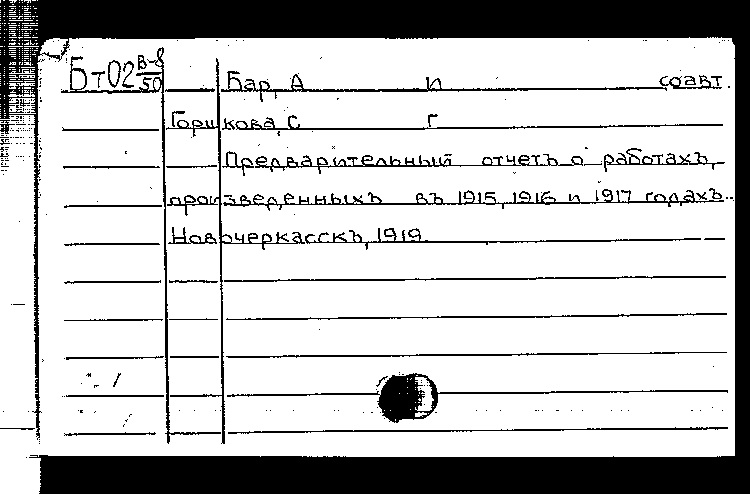 Бт02 В-8/50 Бар, А и соавт.
Горшкова, С г
Предварительный отчетъ о работахъ,
произведенныхъ въ 1915, 1916 и 1917 годахъ..
Новочеркасскъ, 1919.